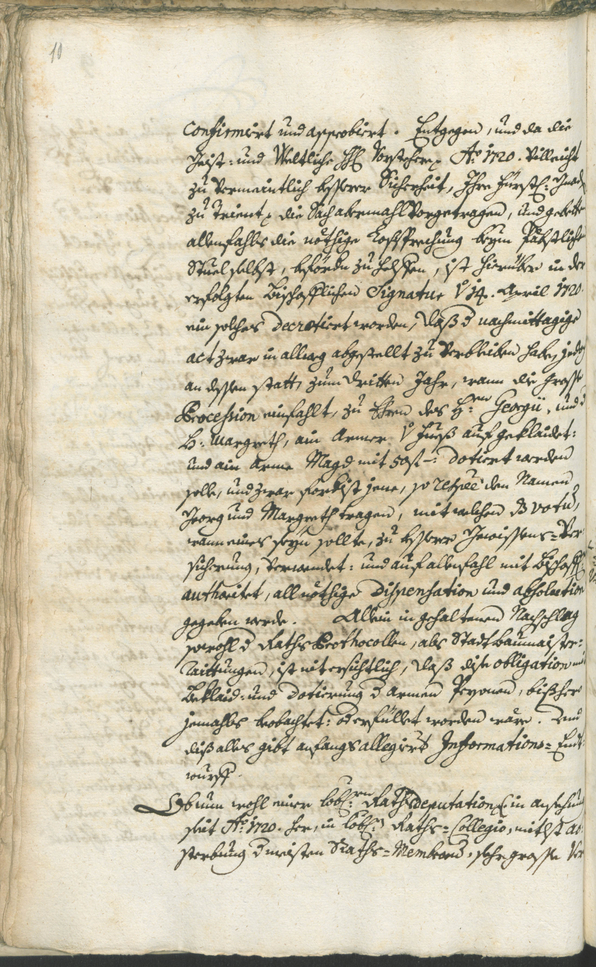 10
confirmiert und approbiert. Entgegen, und da die
Geist: und Weltliche HH. Vorstehere Aō 1720. villeicht
zu vermeintlich besserer Sicherheit, Ihro Fürstl: Gnad
zu Trient, die Sach abermahl vorgetragen, und gebette
allenfahls die nöthige Lossprechung beym Päbstliche
Stuel selbst, befördern zu helffen, ist hierüber in der
erfolgten Bischofflichen Signatur 14. April 1720
ein solches decretiert worden, daß d nachmittägige
act zwar in allweg abgestellt zu verbleiben habe, jedoch
an dessen statt, zum dritten Jahr, wann die grosse
Procession einfahlt, zu Ehren des H: Georgii, und d
H: Margreth, ain Armer auf geklaidet:
und ain Arme Magd mit 50 dotiert werden
solle, und zwar jene, so den Namen
Georg und Margreth tragen, mit welchen ds votū,
wann eines seyn sollte, zu besserer Gewissens-Ver
sicherung, verwendet: und auf allenfahl mit Bischoffl
authoritet, all nöthige Dispensation und absolution
gegeben werde. Allein in gehaltenen Nachschlag
sowohl d Raths Prothocollen, als Stadtbaumaister:
Raittungen, ist nit ersichtlich, daß dise obligation mit
Beklaid: und dotierung d armen Persohnen, bißher
jemahls beobachtet: oder erfüllet worden wäre. Und
diß alles gibt anfangs allegierts Informations-Ent-
wurff.
Ob nun wohl einer löbl: Raths deputation in ansehung
seit Aō 1720. her, in löbl: Raths-Collegio, mitls ab
sterbung d meisten Raths-Membrorū, sehr grosse Ver